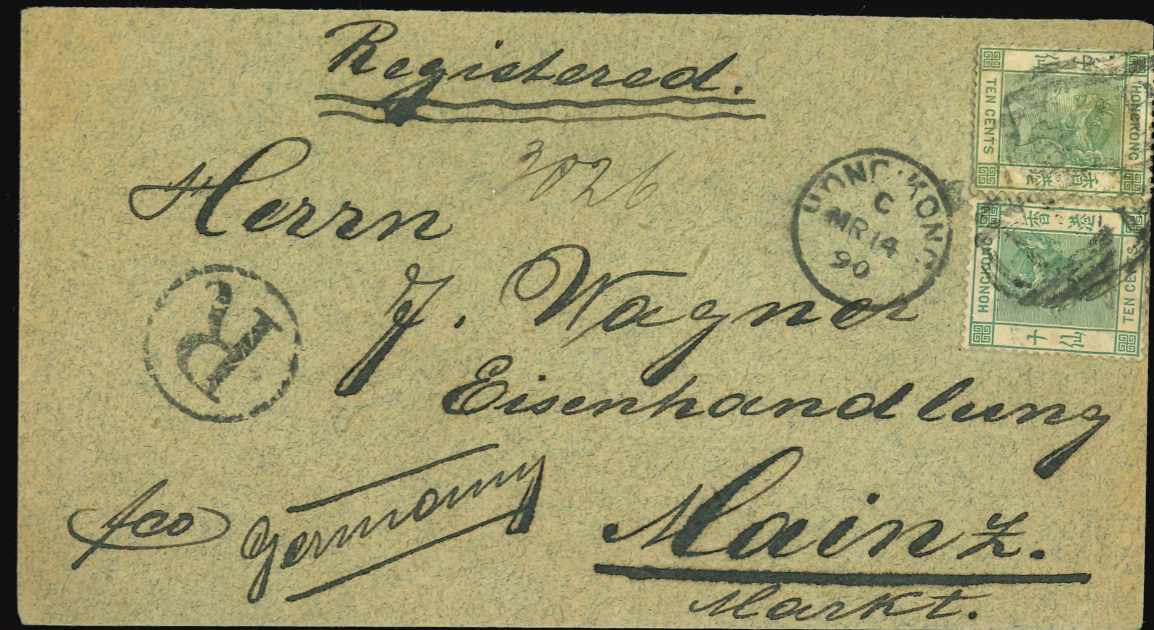 Registered.
3026
Herrn
J. Wagner
Eisenhandlung
Mainz.
Markt.
fco
Germany
R
HONG·KONG
C
MR 14
90
TEN CENTS
HONGKONG
香港
HONGKONG
香港
TEN CENTS
十仙